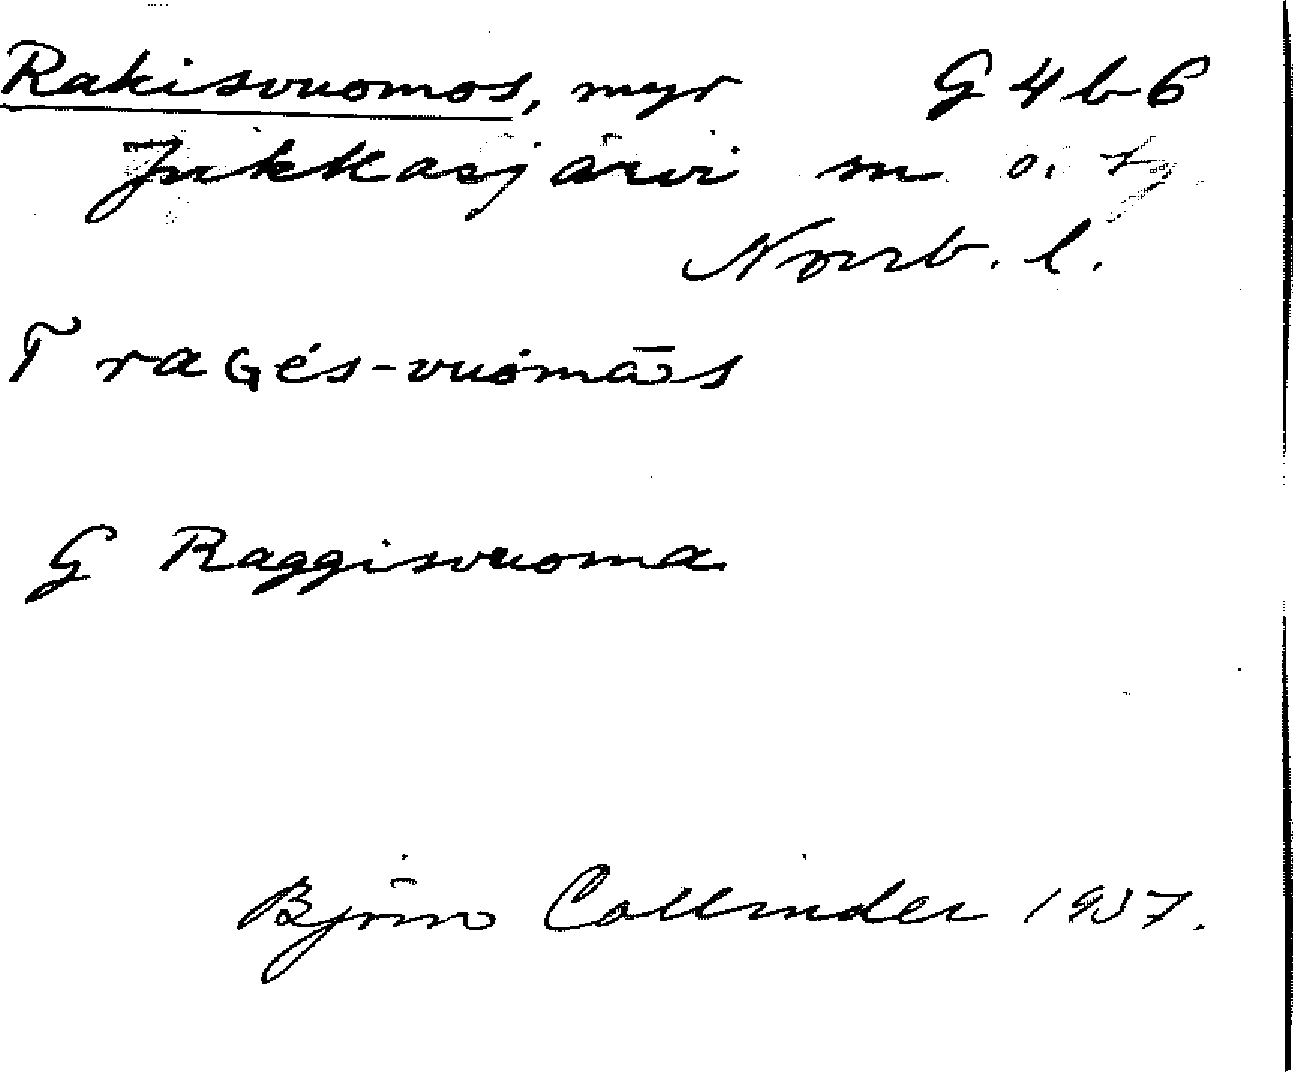 Rakisvuomos, myr G 4 b 6
Jukkasjärvi sn o. tg
Norrb. l.
T raGés-vuomās
G Raggisvuoma
Björn Collinder 1937.